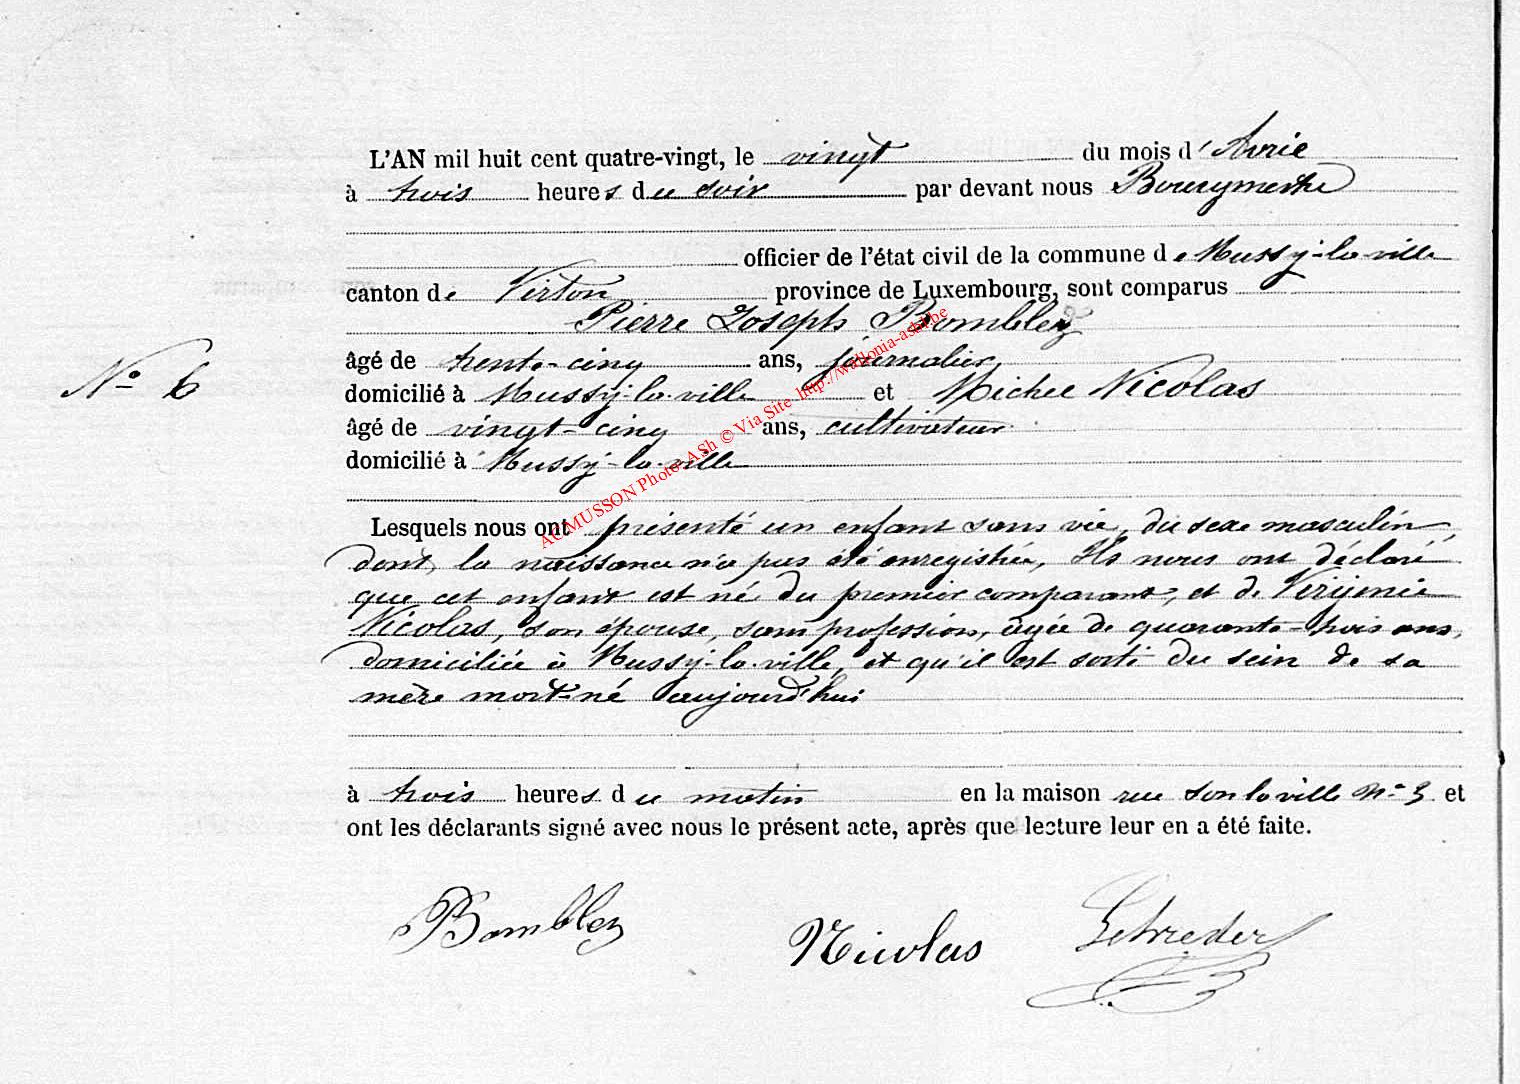 L'AN mil huit cent quatre-vingt, le vingt du mois d'Avril
à trois heures du soir par devant nous Bourgmestre
officier de l'état civil de la commune de Mussy-la-ville
canton de Virton province de Luxembourg, sont comparus
Pierre Joseph Bomblez
N° 6
âgé de trente-cinq ans, journalier,
domicilié à Mussy-la-ville et Michel Nicolas
âgé de vingt-cinq ans, cultivateur
domicilié à Mussy-la-ville
Lesquels nous ont présenté un enfant sans vie, du sexe masculin,
dont la naissance n'a pas été enregistrée, Ils nous ont déclaré
que cet enfant est né du premier comparant, et de Virginie
Nicolas, son épouse, sans profession, âgée de quarante-trois ans,
domiciliée à Mussy-la-ville, et qu'il est sorti du sein de sa
mère mort-né aujourd'hui
à trois heures du matin en la maison rue Son la ville N° 3 et
ont les déclarants signé avec nous le présent acte, après que lecture leur en a été faite.
Bomblez Nicolas
ACMUSSON Photo-ASh © Via Site http://wallonia-asbl.be